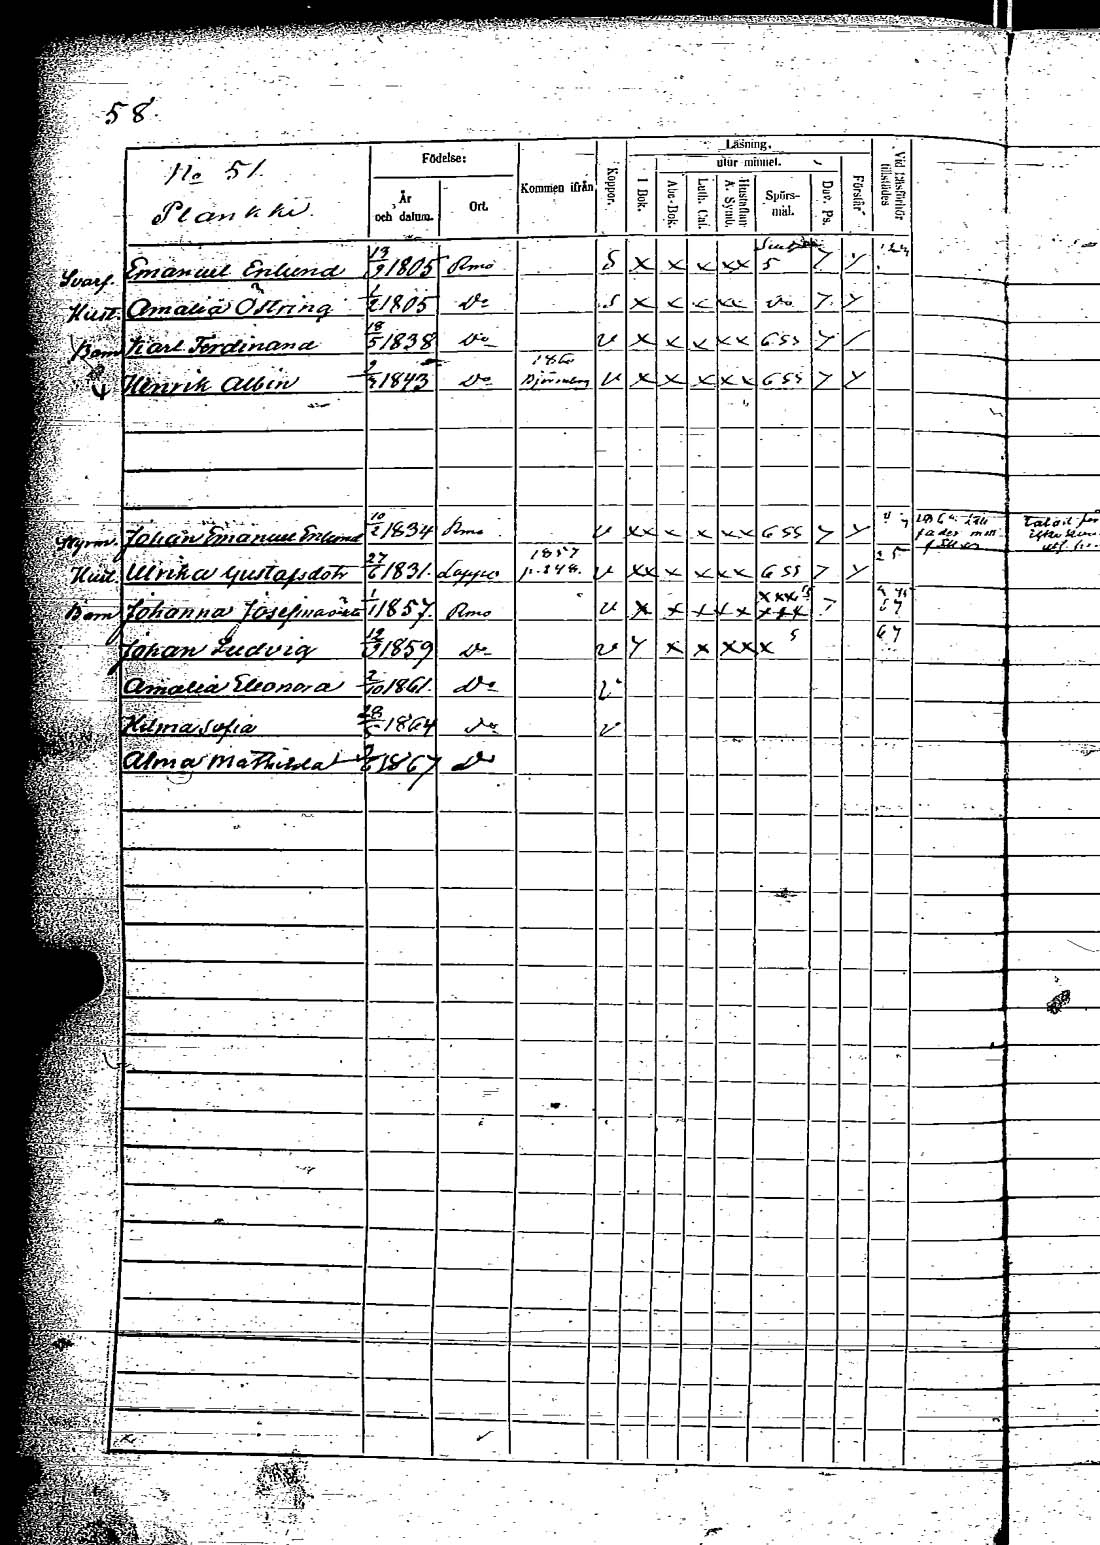 58.
No 51.
Plankki.
Födelse:
År och datum.
Ort.
Kommen ifrån
Koppor.
Läsning.
I Bok.
utur minnet.
Abc-Bok.
Luth. Cat.
Hustaflan A. Symb.
Spörs-mål.
Dav. Ps.
Förstår
Vid Läsförhör tillstädes
Svarf. Emanuel Enlund 19/9 1805 Rmo S x x x xx 5 7 y
Hust. Amalia Östring 1/2 1805 Do S x x x xx Do 7 y
Barn Karl Ferdinand 18/5 1838 Do v x x x xx 6 55 7
1860
Henrik Albin 1843 Do Björneborg v x x x xx 6 55 7 y
Johan Emanuel Enlund 10/2 1834 Rmo v xx x x xx 6 55 7 y
1857
Hust. Ulrika Gustafsdotr 27/6 1831. Lappo p. 248. v xx x x xx 6 55 7 y 25
Barn Johanna Josefina 1/1 1857. Rmo v x x x x x 7 57
Johan Ludvig 1859 Do v y x x xx x 5 67
Amalia Eleonora 2/10 1861. Do v
Hilma Sofia 1864 Do v
Alma Mathilda 1867 Do